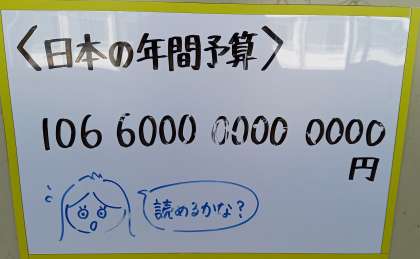 〈日本の年間予算〉
106 6000 0000 0000
円
読めるかな？